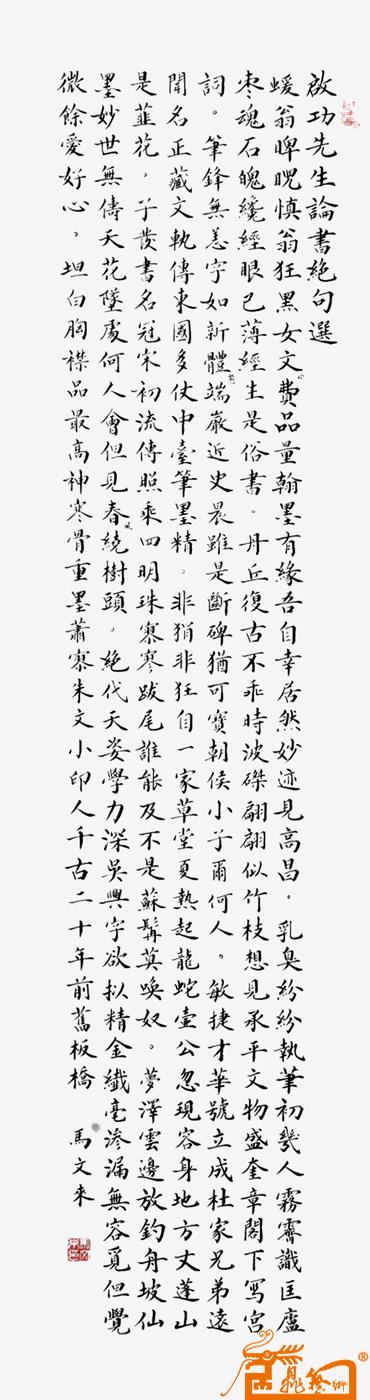 啟功先生論書絕句選
蝯翁睥睨慎翁狂黑女文費品量翰墨有緣吾自幸居然妙迹見高昌。乳臭紛紛執筆初幾人霧霽識匡廬
棗魂石魄纔經眼已薄經生是俗書。丹丘復古不乖時波磔翩翩似竹枝想見承平文物盛奎章閣下寫宮
詞。筆鋒無恙字如新體端嚴近史晨雖是斷碑猶可寶朝侯小子爾何人。敏捷才華號立成杜家兄弟遠
聞名正藏文軌傳東國多仗中臺筆墨精。非狷非狂自一家草堂夏熱起龍蛇壺公忽現容身地方丈蓬山
是韮花。子發書名冠宋初流傳照乘四明珠寨寒跋尾誰能及不是蘇髯莫喚奴。夢澤雲邊放釣舟坡仙
墨妙世無儔天花墜處何人會但見春繞樹頭。絕代天姿學力深吳興字欲拟精金纖毫滲漏無容覓但覺
微餘愛好心。坦白胸襟品最高神寒骨重墨蕭寥朱文小印人千古二十年前舊板橋
馬文來